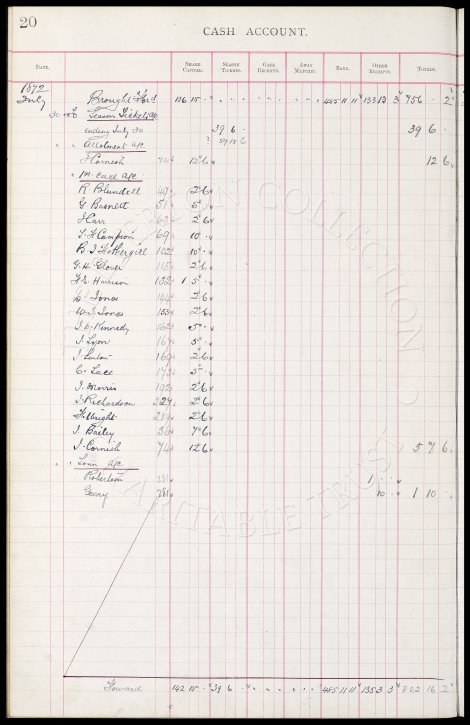 20
CASH ACCOUNT.
DATE. SHARE CAPITAL. SEASON TICKETS. GATE RECEIPTS. AWAY MATCHES. BANK. OTHER RECEIPTS. TOTALS.
1892
July Brought Ford 136 15 485 11 11 133 13 3 756 2
30 Season Tickets a/c
ending July 30 39 6 39 6
59.18.6
" " Allotment a/c
J Cornish 74 12 6 12 6
" 1st Call a/c
R Blundell 49 2 6
G Barnett 51 5
J Carr 63 2 6
J. H Campion 69 10
B. J Fothergill 102 10
G. H. Glover 115 2 6
H. E. Harrison 132 1 5
C. Jones 2 6
W. J. Jones 155 2 6
J. C. Kennedy 162 5
J. Lyon 164 5
J. Linton 169 2 6
C. Luce 179 5
J. Morris 192 2 6
J. Richardson 227 2 6
H. Wright 289 2 6
J. Bailey 36 7 6
J. Cornish 74 12 6 5 7 6
" " Loan a/c
Robertson 281 1
Geary 281 10 1 10
COLLECTION
CHARITABLE TRUST
Forward 142 15 39 6 485 11 11 135 3 3 802 16 2